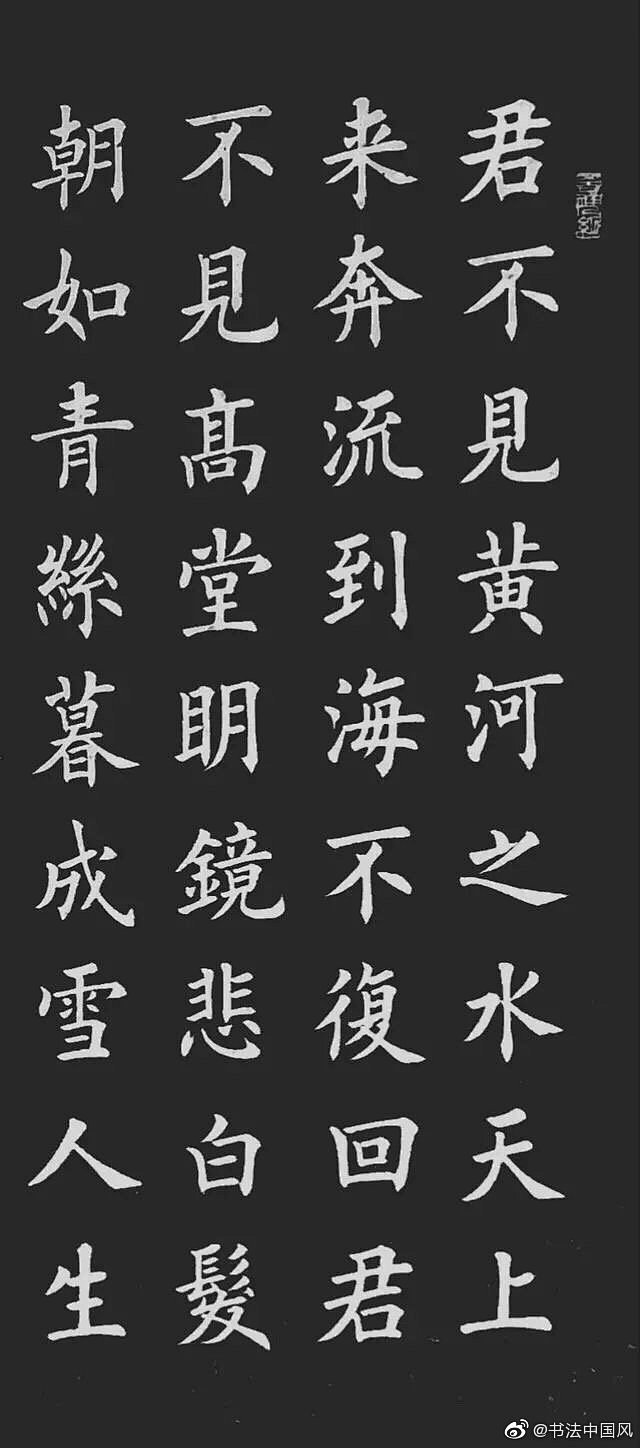 君不見黄河之水天上
来奔流到海不復回君
不見髙堂明鏡悲白髮
朝如青絲暮成雪人生
@书法中国风